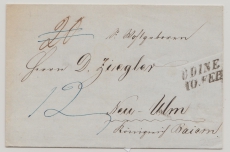 20
Sr Hochgeboren
Herrn D. Ziegler
UDINE
10. FEB
12
Neu-Ulm
Königreich Baiern